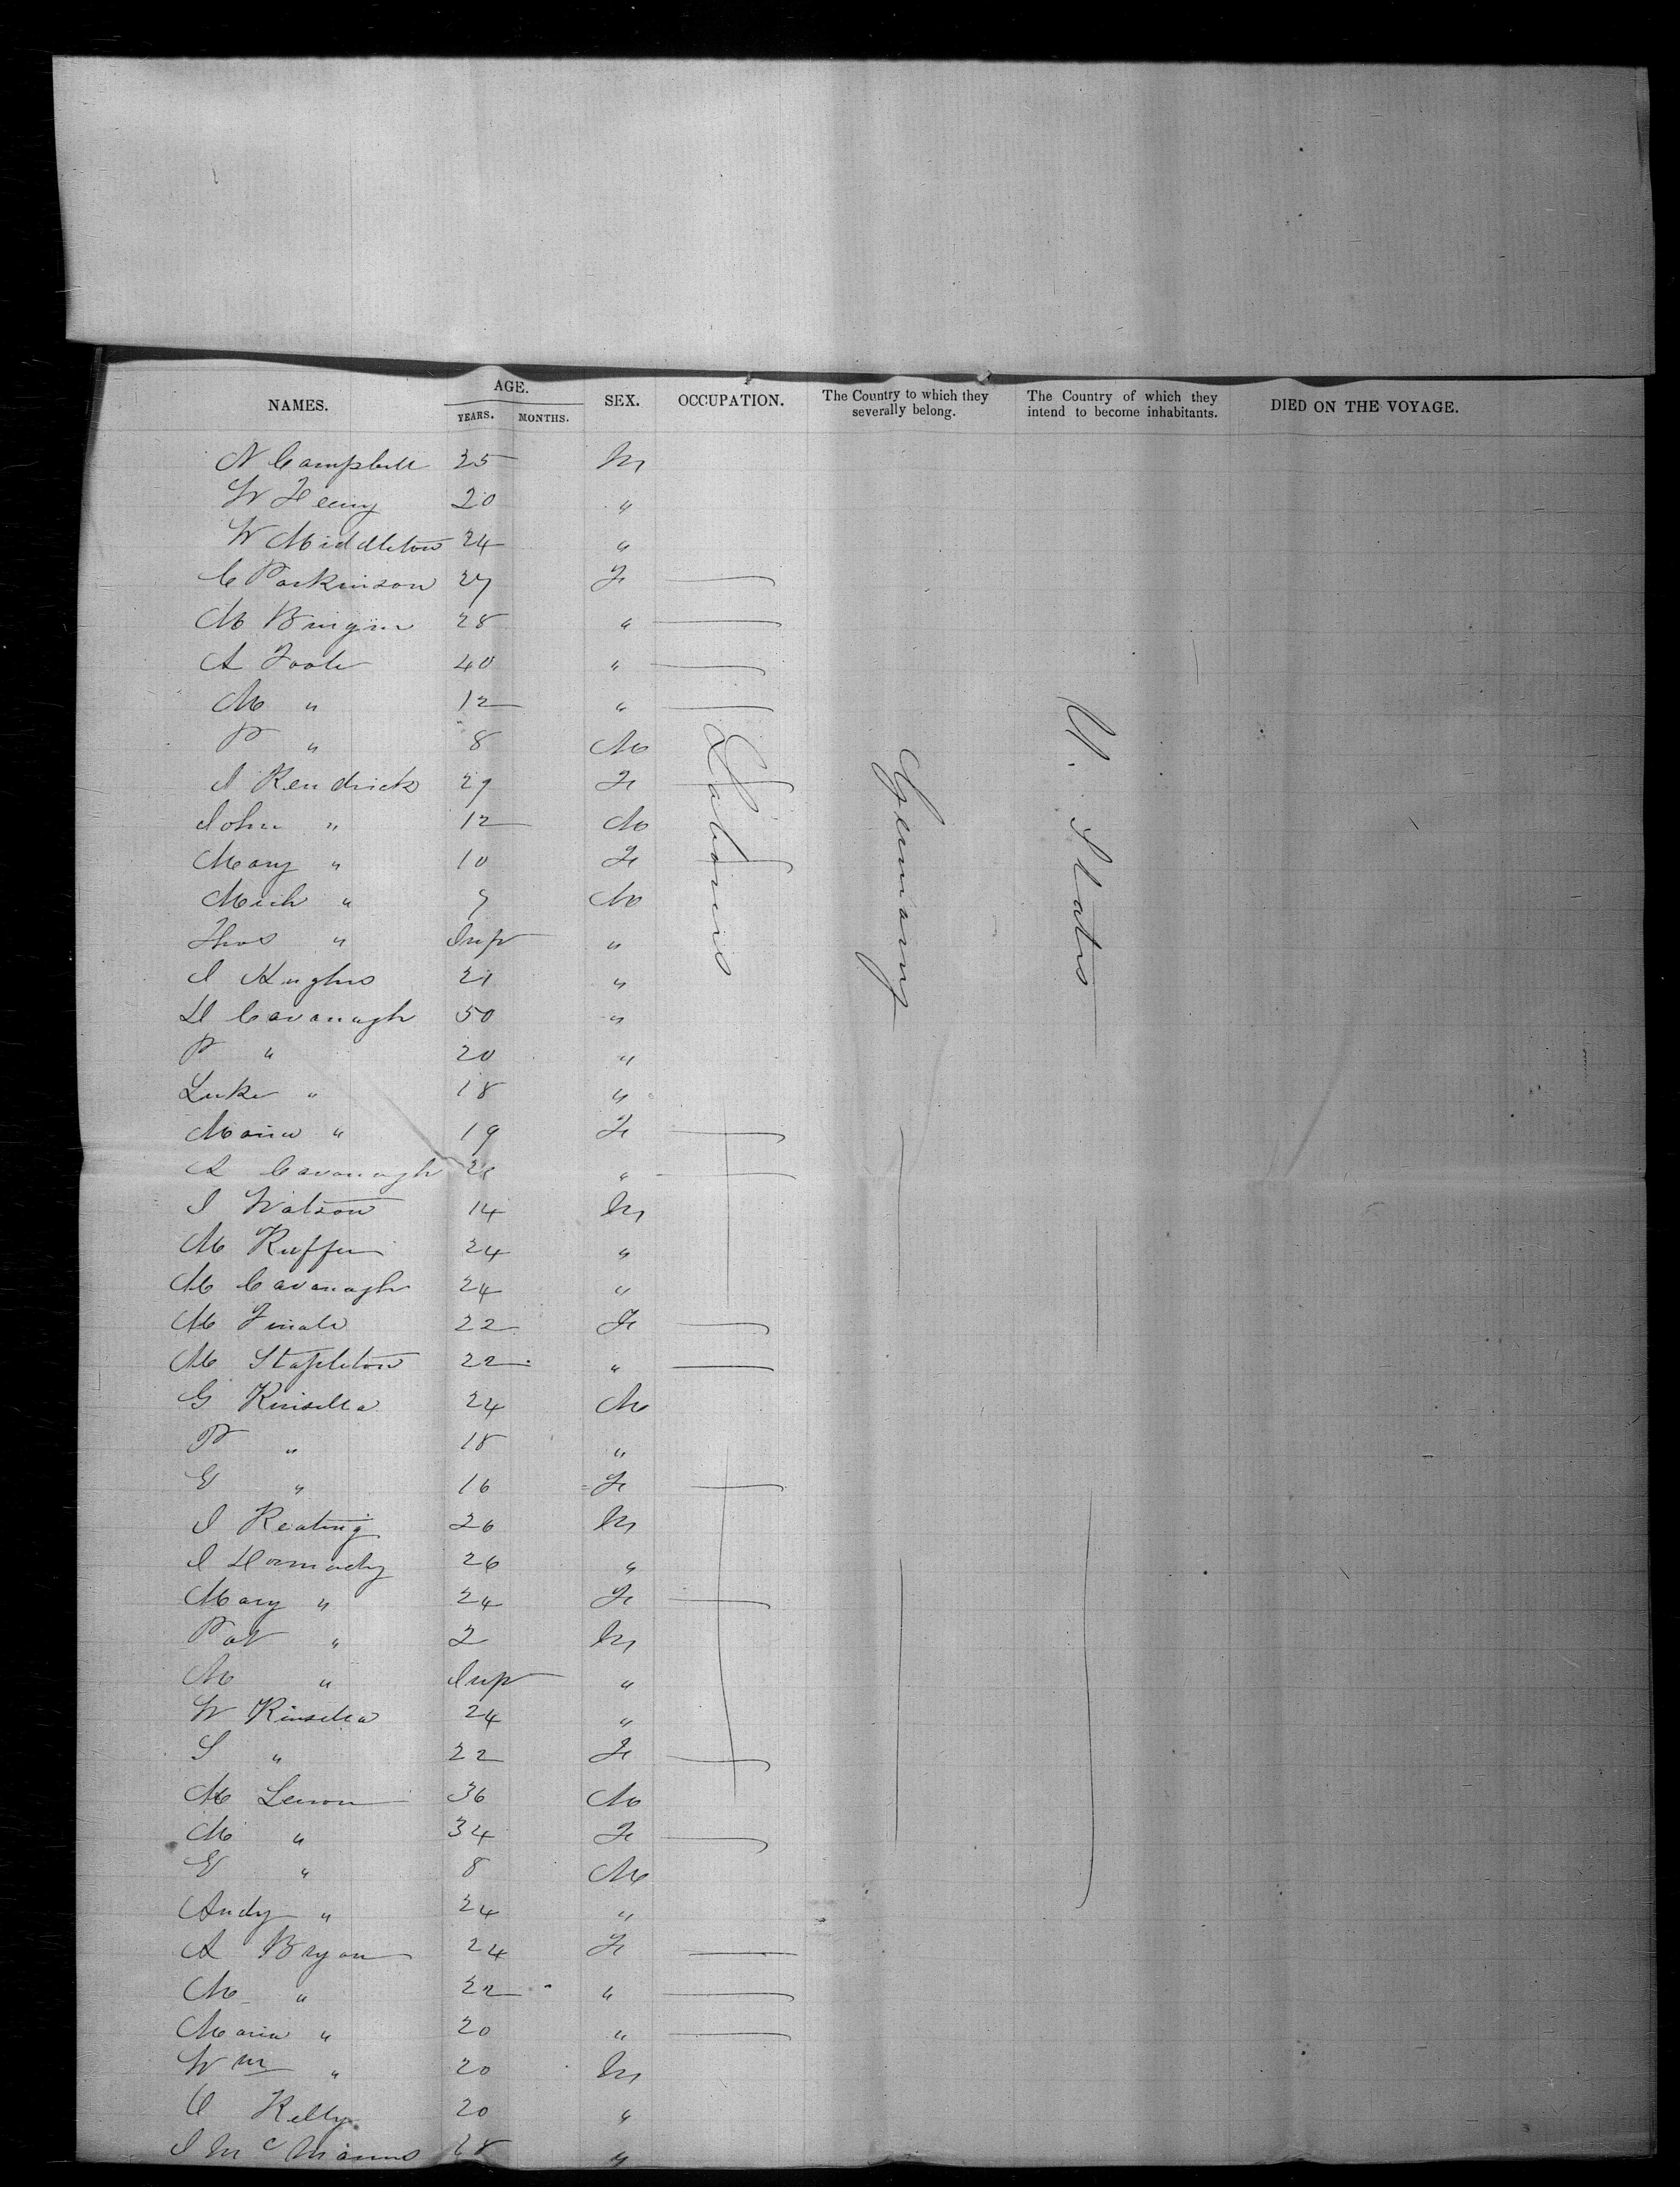 NAMES. AGE. YEARS. MONTHS. SEX. OCCUPATION. The Country to which they severally belong. The Country of which they intend to become inhabitants. DIED ON THE VOYAGE.
N Campbell 25 M
W 20 "
W Middleton 24 "
C Parkinson 27 F
M 28 "
A Toole 40 "
M " 12 "
P " 8 M
J Kendrick 29 F
John " 12 M
Mary " 10 F
Mich " 7 M
Thos " Inf "
J Hughes 21 "
D Cavanagh 50 "
P " 20 "
Luke " 18 "
Maria " 19 F
A Cavanagh "
J Watson 14 M
M Ruffin 24 "
M Cavanagh 24 "
M 22 F
M Stapleton 22 "
G Kinsella 24 M
P " 18 "
E " 16 F
J Keating 26 M
J Dormady 26 "
Mary " 24 F
Pat " 2 M
M " Inf "
W Kinsella 24 "
S " 22 F
M Lennon 36 M
M " 34 F
E " 8 M
Andy " 24 "
A Bryan 24 F
M " 22 "
Maria " 20 "
Wm " 20 M
C Kelly 20 "
J McManus 28 "
Labourers
Germany
U. States